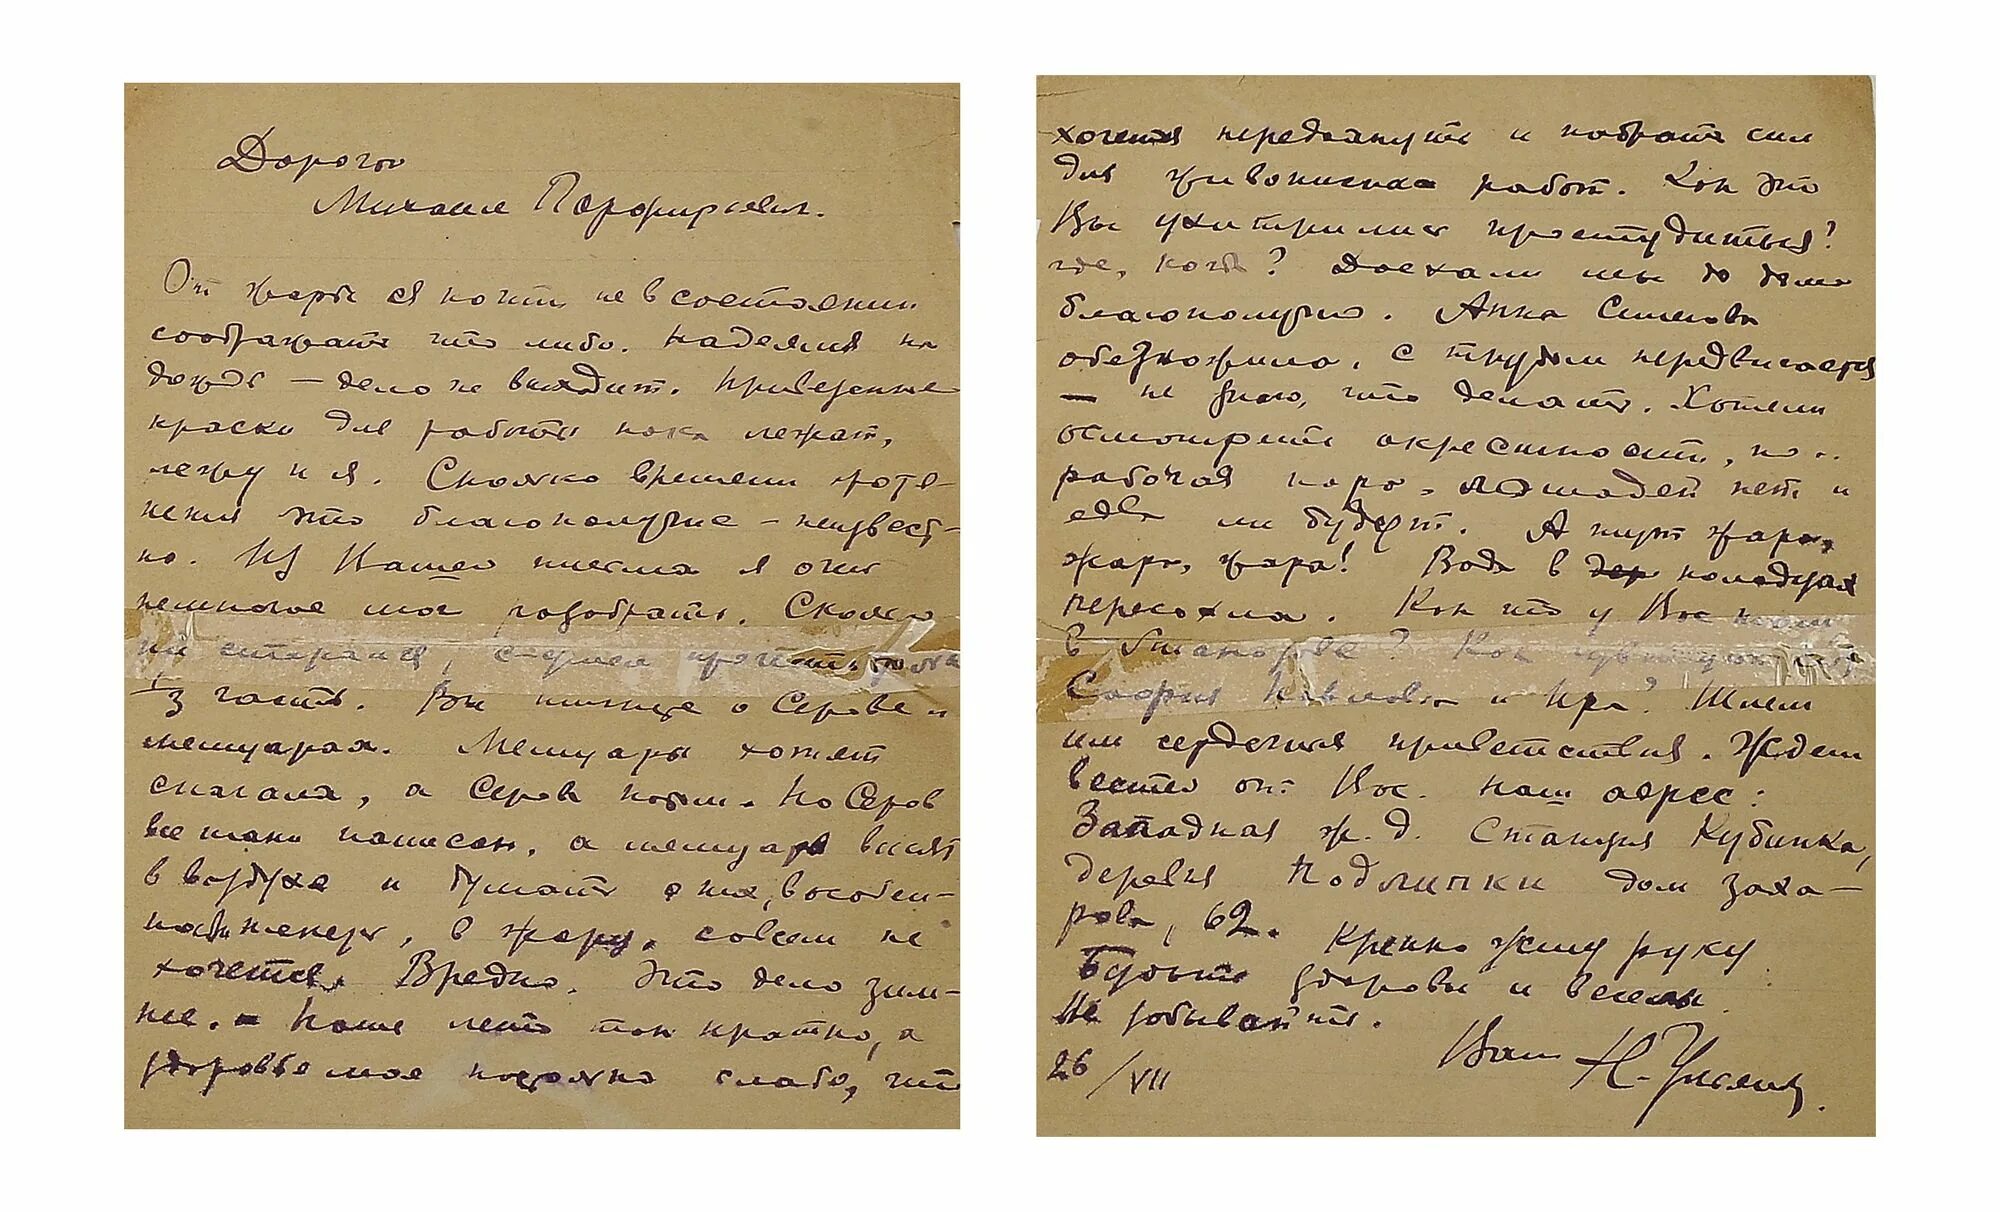 Дорогой
Михаил Порфирьевич.
От жары я почти не в состоянии
соображать что либо. Надеялся на
дождь — дело не выходит. Привезенные
краски для работы пока лежат,
лежу и я. Сколько времени протя-
нется это благополучие – неизвест-
но. Из Вашего письма я очень
немногое мог разобрать. Сколько
ни старался, сумел прочесть только
⅓ часть. Вы пишете о Серове и
мемуарах. Мемуары хотят
сначала, а Серов потом. Но Серов
все таки написан, а мемуары висят
в воздухе и думать о них, в особен-
ности теперь, в жару, совсем не
хочется. Вредно. Это дело зим-
нее. – Наше лето так кратко, а
здоровье мое настолько слабо, что
хочется передохнуть и набрать сил
для живописных работ. Как это
Вы ухитрились простудиться?
где, когда? Доехали мы до дома
благополучно. Анна Семеновна
обезножила, с трудом передвигается
— не знаю, что делать. Хотели
осмотреть окрестности, но ..
рабочая пора, лошадей нет и
едва ли будут. А тут жара,
жара, жара! Вода в колодцах
пересохла. Как что у Вас
в ? Как чувствуют себя
София Павловна и Ира? Шлем
им сердечные приветствия. Ждем
вестей от Вас. Наш адрес:
Западная ж.д. Станция Кубинка,
деревня Подлипки дом Заха-
рова, 62. Крепко жму руку
Будьте здоровы и веселы
Не забывайте.
Ваш Н. Ульянов.
26/VII